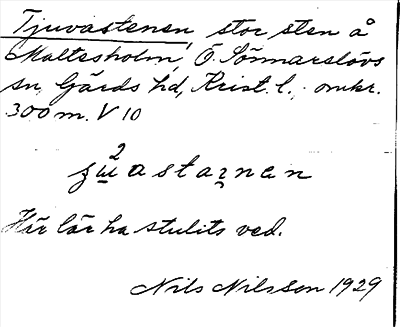 Tjuvastenen, stor sten å
Maltesholm, Ö. Sönnarslövs
sn, Gärds hd, Krist. l., omkr.
300 m. V 10
2
ʒɯastaʒnan
Här lär ha stulits ved.
Nils Nilsson 1929